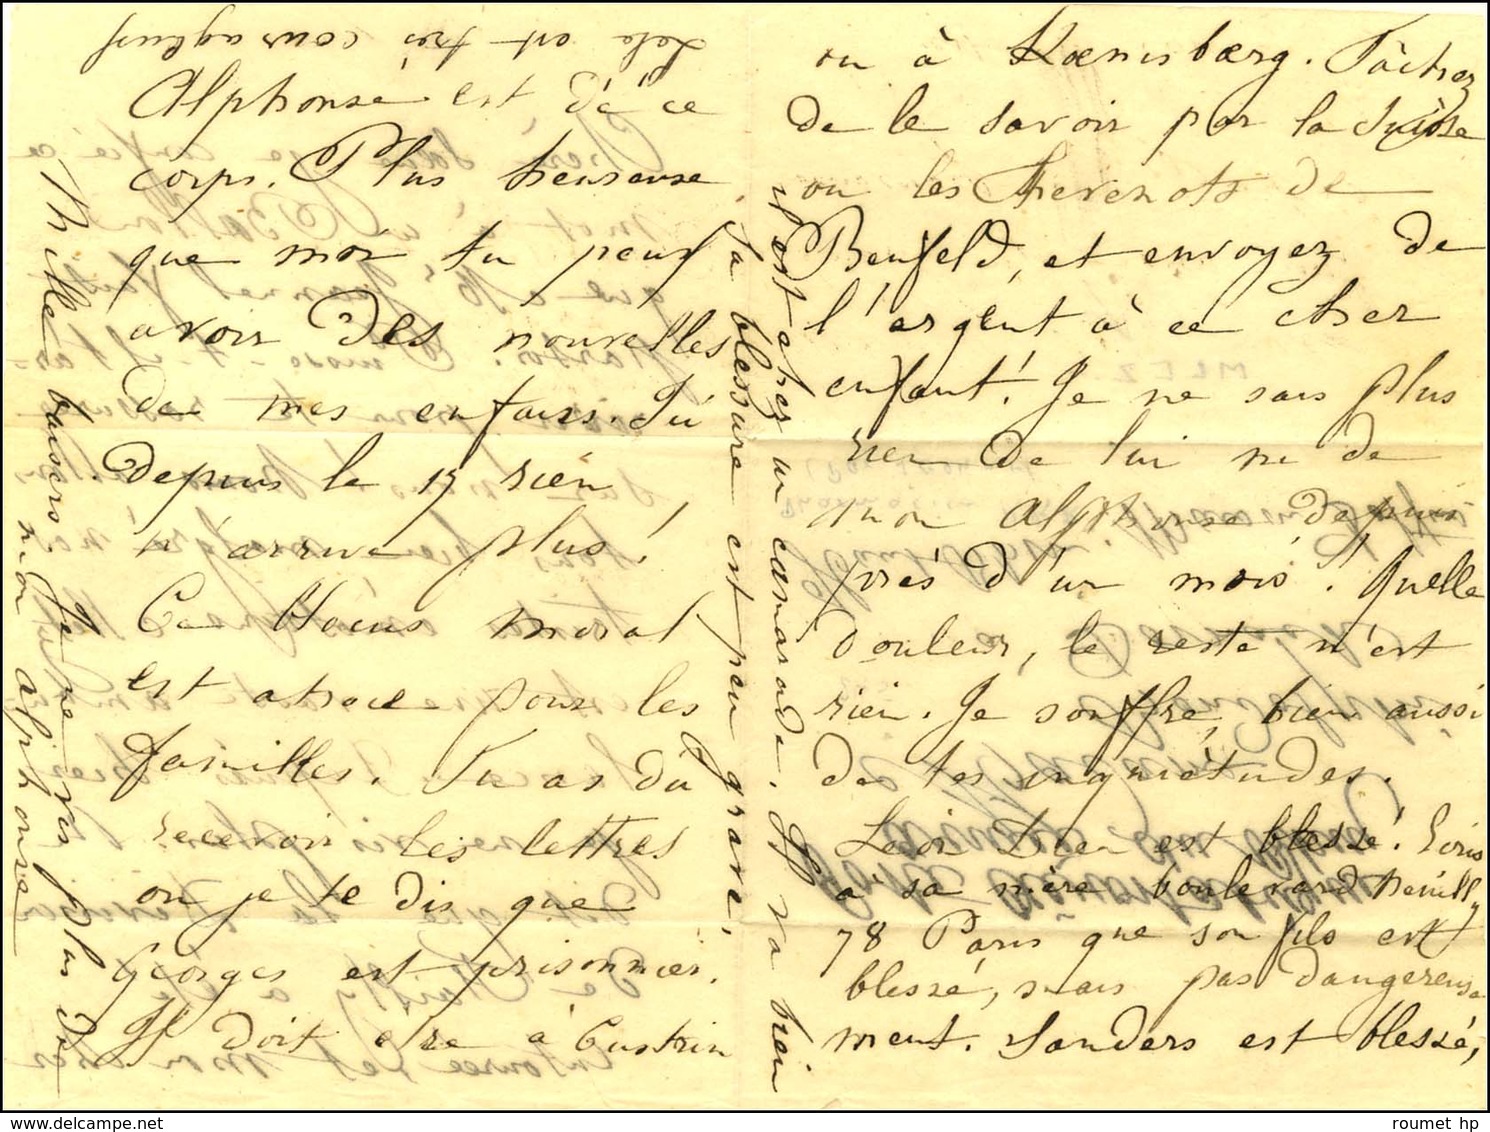 Alphonse est de ce
corps. Plus heureuse
que moi tu peux
avoir des nouvelles
de mes enfans. Ici
depuis le 17 rien
n'arrive plus!
Ce blocus moral
est atroce pour les
familles. Tu as dû
recevoir les lettres
ou je te dis que
Georges est prisonnier.
Il doit etre à Custrin
ou à Kœnisbærg. Tâchez
de le savoir par la Suisse
ou les Thevenots de
Benfeld, et envoyez de
l'argent à ce cher
enfant! Je ne sais plus
rien de lui ni de
mon Alphonse depuis
près d'un mois! Quelle
douleur, le reste n'est
rien. Je souffre bien aussi
de tes inquiétudes.
Léon est blessé! Ecris
à sa mère boulevard Neuilly
78 Paris que son fils est
blessé, mais pas dangereuse
ment. Sanders est blessé,
il est chez un camarade. Il va bien
sa blessure est peu grave,
Lele est très courageux
Mille baisers. Je ne vis plus de
mon alphonse